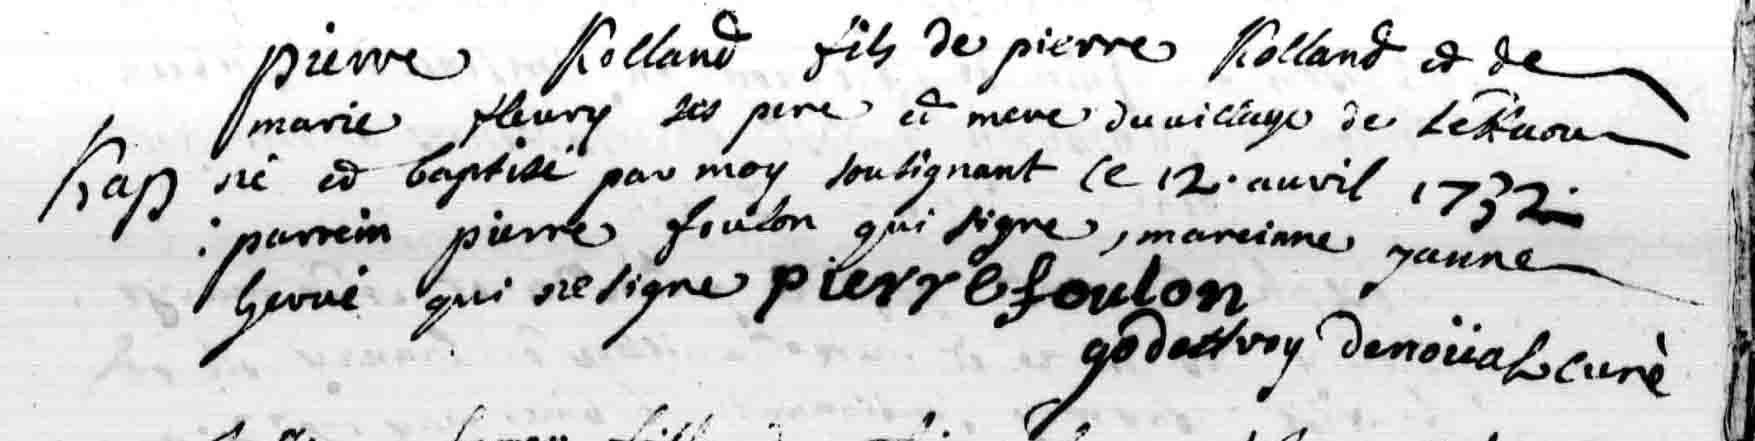 pierre Rolland fils de pierre Rolland et de
marie fleury ses pere et mere du village de
né et baptisé par moy sousignant ce 12. auril 1732.
: parrein pierre foulon qui signe, mareinne janne
hervé qui ne signe pierre foulon
godeffroy denoüal curé